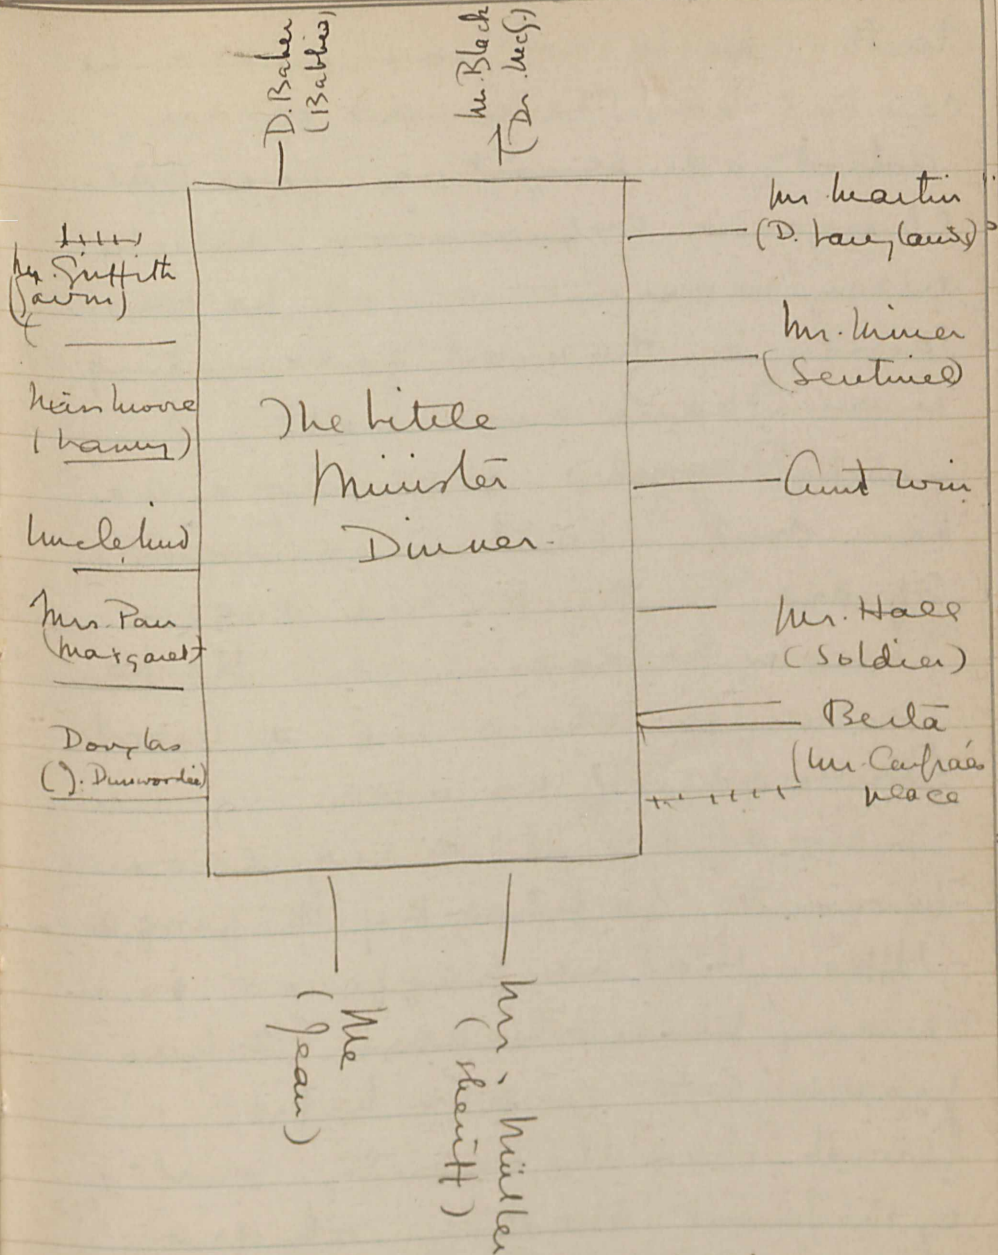 D. Baker
(Babbie)
Mr. Black
(Dr. McQ.)
Mr. Griffith
(Gavin)
Miss Moore
(Nanny)
Uncle
Mrs. Parr
(Margaret)
Douglas
(J. Dunwordie)
The Little
Minister
Dinner.
Mr Martin
(D.
Mr.
(Sentinel)
Aunt Win
Mr. Hall
(Soldier)
Berta
(Mr. Carfrae's
place
Me
(Jean)
Mr. Müller
(Sheriff)